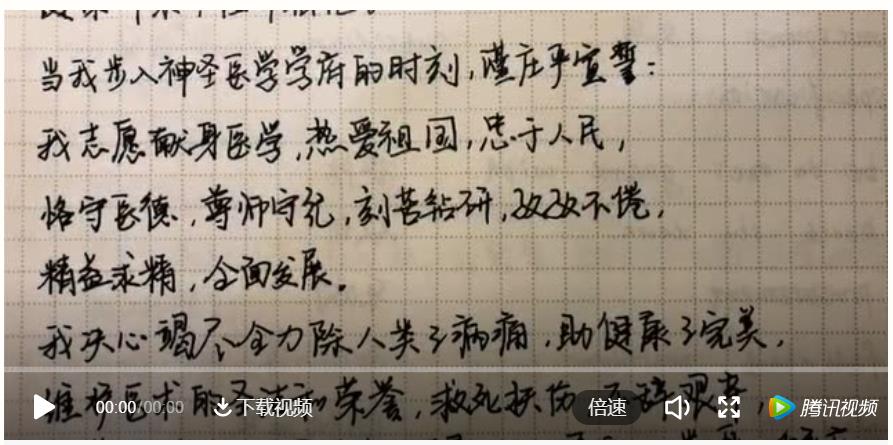 当我步入神圣医学学府的时刻,谨庄严宣誓:
我志愿献身医学,热爱祖国,忠于人民,
恪守医德,尊师守纪,刻苦钻研,孜孜不倦,
精益求精,全面发展。
我决心竭尽全力除人类之病痛,助健康之完美,
维护医术的圣洁和荣誉,救死扶伤,不辞艰辛,
00:00/00:00
下载视频
倍速
腾讯视频